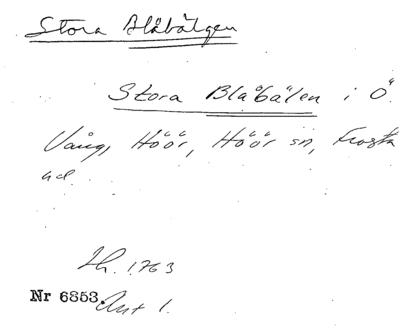 Stora Blåbälgen
Stora Blåbälen i Ö
Vång, Höör, Höör sn, Frosta
hd.
Lh. 1763
Nr 6853. Akt 1.